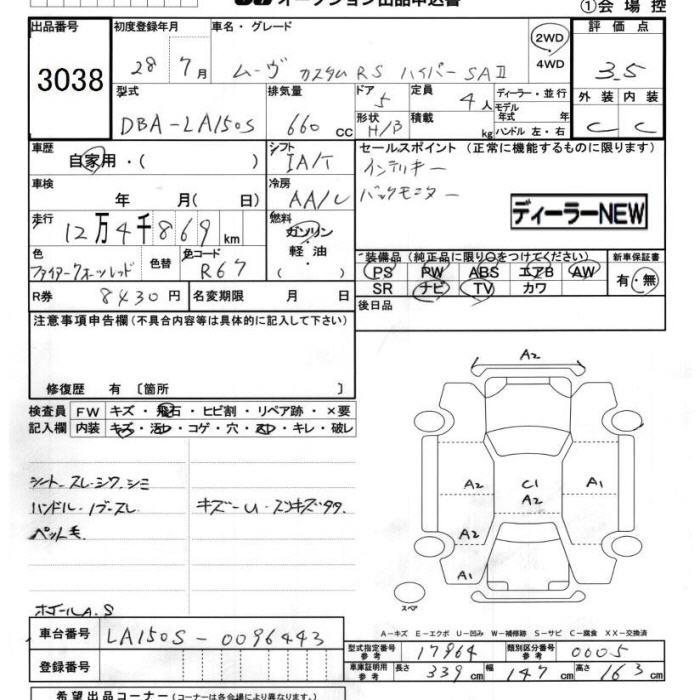 オークション出品申込書
①会場控
出品番号
3038
初度登録年月
28年 7月
車名・グレード
ムーヴ カスタム RS ハイパーSAⅡ
2WD
4WD
評価点
3.5
外装 内装
C C
型式
DBA-LA150S
排気量
660 cc
ドア
5
形状
H/B
定員
4人
積載
kg
ディーラー・並行
モデル
年式 年
ハンドル 左・右
車歴
自家用・( )
シフト
IA/T
セールスポイント (正常に機能するものに限ります)
インテリキー
バックモニター
ディーラーNEW
車検
年 月( 日)
冷房
AA/C
走行
12万4千869km
燃料
ガソリン
軽油
( ・ )
色
色替
色コード
R67
装備品(純正品に限り○をつけてください)
PS PW ABS エアB AW
SR ナビ TV カワ
新車保証書
有・無
R券
8430円
名変期限 月 日
後日品
注意事項申告欄(不具合内容等は具体的に記入して下さい)
修復歴 有〔箇所 〕
検査員
記入欄
FW キズ・飛石・ヒビ割・リペア跡・×要
内装 キズ・汚れ・コゲ・穴・スレ・キレ・破レ
シート スレ・シワ・シミ
ハンドル・ノブ・スレ
キズーU・スリキズタタ
ペット毛
ホイールA.S
A2
A2
C1
A2
A1
A2
A2
A1
スペア
A-キズ E-エクボ U-凹み W-補修跡 S-サビ C-腐食 XX-交換済
車台番号
LA150S-0096443
登録番号
型式指定番号
参考
17964
類別区分番号
参考
0605
車庫証明用
参考
長さ 339cm 幅 147cm 高さ 163cm
希望出品コーナー(コーナーは各会場により異なります。)